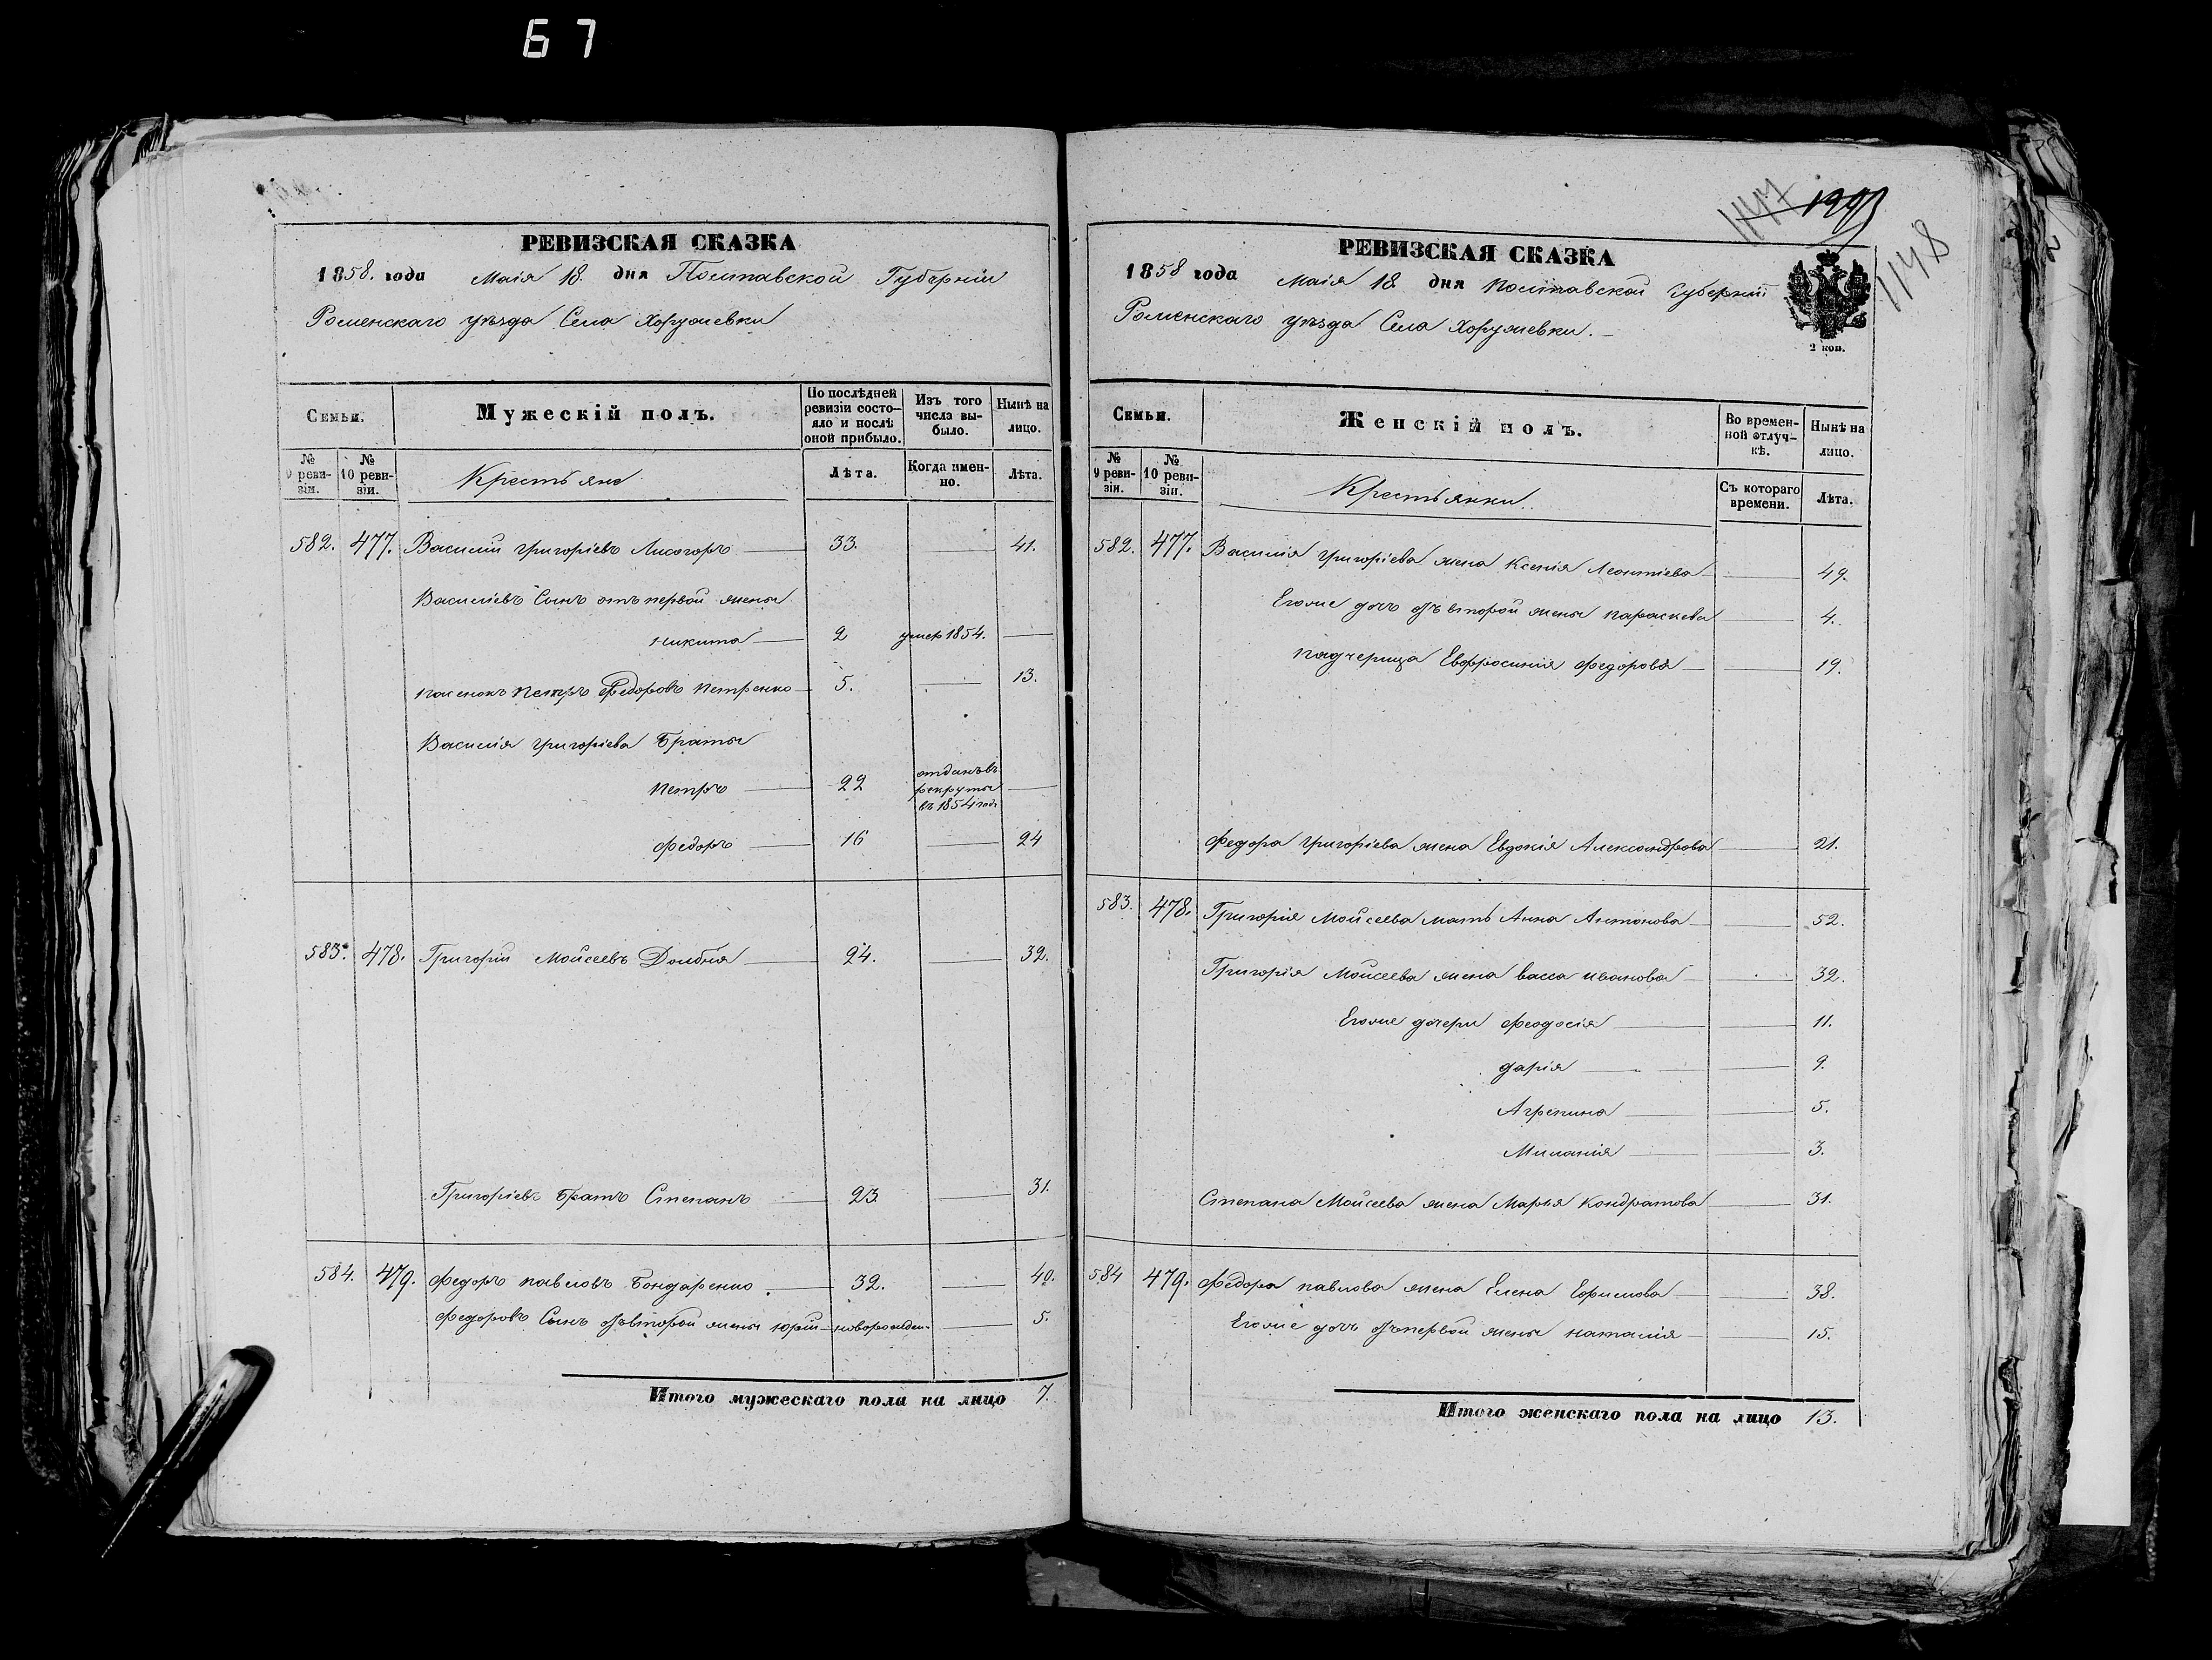 67
РЕВИЗСКАЯ СКАЗКА
1858. года Маія 18. дня Полтавской Губерніи
Роменскаго уѣзда Села Хоружевки
Семьи. Мужескій полъ. По послѣдней ревизіи состояло и послѣ оной прибыло. Изъ того числа выбыло. Нынѣ на лицо.
№ 9 ревизіи. № 10 ревизіи. Крестьяне Лѣта. Когда именно. Лѣта.
582. 477. Василій Григоріевъ Лисогоръ 33. 41.
Василіевъ Сынъ отъ первой жены
Никита 2 умер 1854.
пасенокъ Петръ Федоровъ Петренко 5. 13.
Василія Григоріева Братья
Петръ 22 отданъ въ рекруты въ 1854 годе
Федоръ 16 24
583. 478. Григорій Мойсеевъ Долбня 24. 32.
Григоріевъ Братъ Степанъ 23 31.
584. 479. Федоръ Павловъ Бондаренко 32. 40.
Федоровъ Сынъ отъ второй жены Юрій новорожден. 5.
Итого мужескаго пола на лицо 7.
1147 1148
РЕВИЗСКАЯ СКАЗКА
1858 года Маія 18 дня Полтавской Губерніи
Роменскаго уѣзда Села Хоружевки.
2 коп.
Семьи. Женскій полъ. Во временной отлучкѣ. Нынѣ на лицо.
№ 9 ревизіи. № 10 ревизіи. Крестьянки. Съ котораго времени. Лѣта.
582. 477. Василія Григоріева жена Ксенія Леонтіева 49.
Егоже дочь отъ второй жены Параскева 4.
Падчерица Евфросинія Федорова 19.
Федора Григоріева жена Евдокія Александрова 21.
583. 478. Григорія Мойсеева мать Анна Антонова 52.
Григорія Мойсеева жена Васса Иванова 32.
Егоже дочери Феодосія 11.
Дарія 9.
Агрепина 5.
Миланія 3.
Степана Мойсеева жена Марья Кондратова 31.
584 479. Федора Павлова жена Елена Ефимова 38.
Егоже дочь отъ первой жены Наталія 15.
Итого женскаго пола на лицо 13.